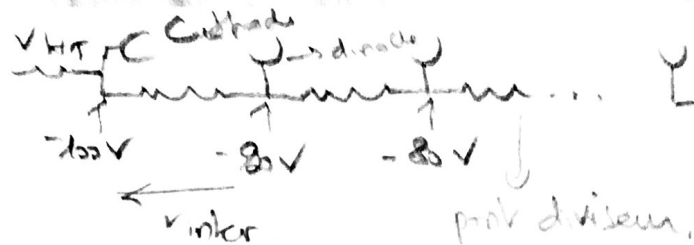 V HT Cathode
dinode
-100V -90V -80V
Vinter pont diviseur